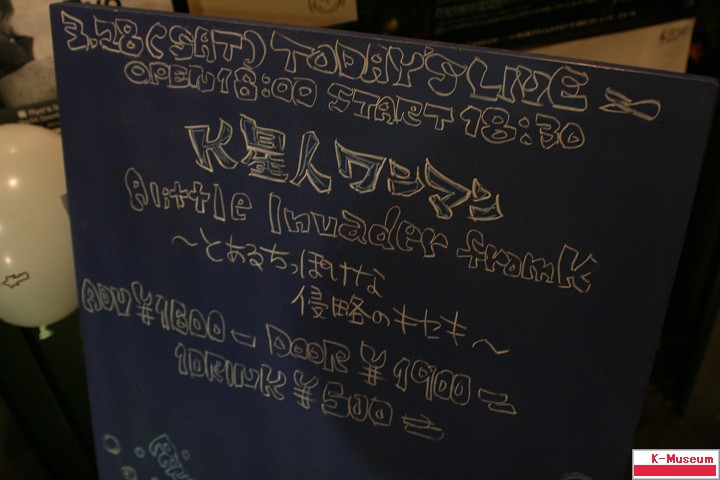 3.28(SAT) TODAY'S LIVE
OPEN18:00 START 18:30
K星人ワンマン
A little Invader from K
～とあるちっぽけな
侵略のキセキ～
ADV ¥1600- DOOR ¥1900-
1DRINK ¥500-
K-Museum